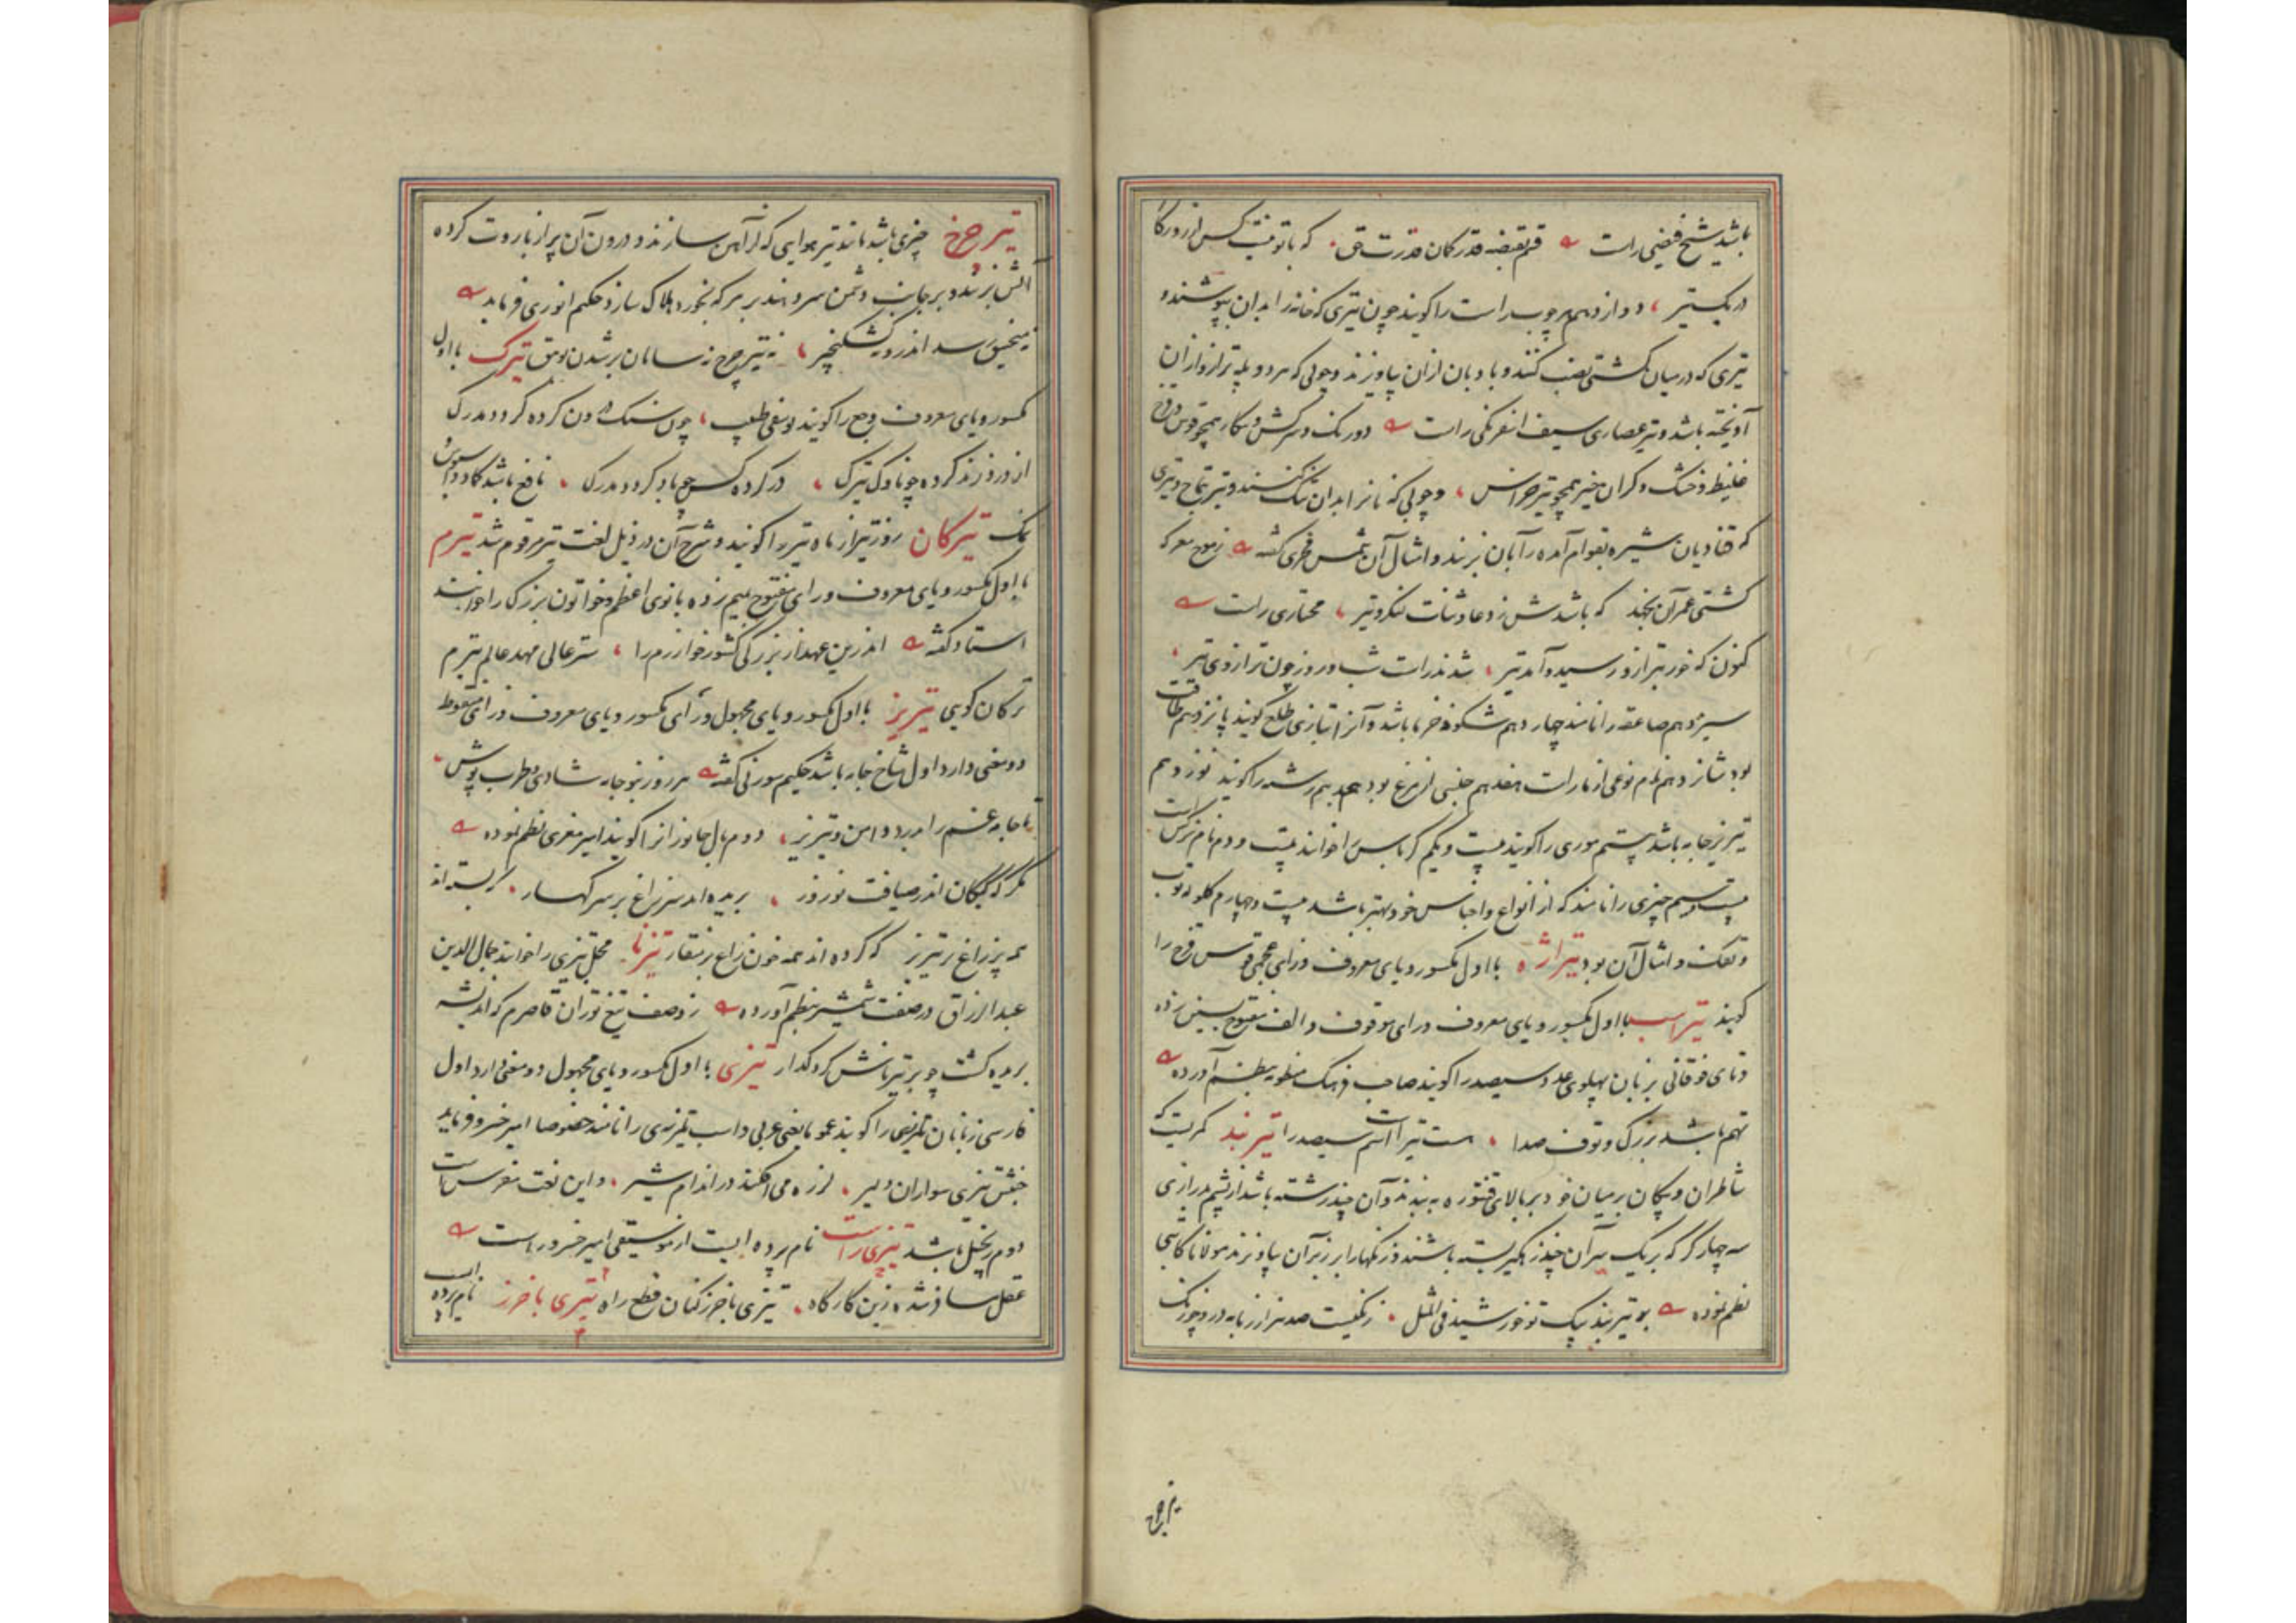 باشد شیخ فیضی راست قم بقبضه قدر کمان قدرت حق که با تو نیست کس از روزگار
در یک تیر دوازدهم هر چوب راست را گویند چون تیری که خانه را بدان بپوشند و
تیری که در میان کشتی نصب کنند و بادبان ازان بیاویزند و چوبی که هر دو پله ترازو ازان
آویخته باشد و تیر عصاری سیف اسفرنکی راست دورنک و سرکش و همچو قوس قزح
غلیظ و خشک و کران خیز همچو تیر خراس و چوبی که نان را بدان تنک کنند و تیر تماج و تیری
که قنادیان شیره بقوام آمده را بان بزنند و امثال آن شمس فخری گفته ز موج معرکه
کشتی عمر آن نجهد که باشدش ز دعا و ثنات لنکر و تیر مختاری راست
کنون که خور بترازو رسید و آمد تیر شدند راست شب و روز چون ترازوی تیر
سیزدهم صاعقه را نامند چهاردهم شکوفه خرما باشد و آنرا بتازی طلع گویند پانزدهم طاقت
بود شانزدهم نام نوعی از مار است هفدهم جنسی از مرغ بود هجدهم رشته را گویند نوزدهم
تیریز جامه باشد بیستم موری را گویند بیست و یکم کرباس را خوانند بیست و دوم نام نرکس است
بیست و سیم چیزی را نامند که از انواع و اجناس خود بهتر باشد بیست و چهارم گلوله توپ
و تفنک و امثال آن بود تیراژه با اول مکسور و یای معروف و زای عجمی قوس قزح را
گویند تیراست با اول مکسور و یای معروف و رای موقوف و الف مفتوح بسین زده
و تای فوقانی بزبان پهلوی عدد سیصد را گویند صاحب فرهنک منظومه بنظم آورده
تهم باشد بزرک و توف صدا هست تیراست اسم سیصد را تیربند کمریست که
شاطران و پیکان بر میان خود بر بالای فنتوره به بندند و آن چند رشته باشد از پشم بدرازی
سه چهار گز که بر یک سر آن چند زهکیر بسته باشند و زنکها را بر زبر آن بیاویزند مولانا کاتبی
نظم نموده بو تیربند پیک تو خورشید فی المثل زنکیست صد هزار زبانه در و چو زنک
تیر چرخ
تیر چرخ چیزی باشد مانند تیر هوایی که از آهن سازند و درون آن پر از باروت کرده
آتش بزنند و بر جانب دشمن سر دهند بر هر که بخورد هلاک سازد حکیم انوری فرماید
نه منجنیق رسد اندرو نه کشکنجیر نه تیر چرخ نه سامان بر شدن بوهق تیرک با اول
مکسور و یای معروف وجع را گویند یوسفی طبیب چون سنک درون کرده گردد مدرک
از درد زند کرده چو ناوک تیرک در کرده کس چو باد گردد مدرک نافع باشد کاورس و سبوس و
نمک تیرکان روز تیر از ماه تیر را گویند و شرح آن در ذیل لغت تیر مرقوم شد تیرم
با اول مکسور و یای معروف و رای مفتوح بمیم زده بانوی اعظم و خاتون بزرک را خوانند
استاد گفته اندرین عهد از بزرگی کشور خوارزم را ستر عالی مهد عالم تیرم
ترکان گویی تیریز با اول مکسور و یای مجهول و رای مکسور و یای معروف و زای منقوط
دو معنی دارد اول شاخ جامه باشد حکیم سوزنی گفته هر روز بنو جامه شادی و طرب پوش
تا جامه غم را بدرد دامن و تیریز دوم بال جانوران را گویند امیر معزی نظم نموده
مگر که کبکان اندر ضیافت نوروز بریده اند سر زاغ بر سر کهسار که بسته اند
همه پر زاغ بر تیریز که کرده اند همه خون زاغ بر منقار تیزنا محل تیزی را خوانند جمال الدین
عبدالرزاق در صفت شمشیر بنظم آورده ز وصف تیغ تو زان قاصرم که اندیشه
بریده گشت چو بر تیزناش کرد گذار تیزی با اول مکسور و یای مجهول دو معنی دارد اول
فارسی زبانان تازیی را گویند عموما یعنی عربی و اسب تازی را نامند خصوصا امیر خسرو فرماید
جنبش تیزی سواران دلیر لرزه می افکند در اندام شیر و این لغت مفرس است
دوم زنجبیل باشد تیزی راست نام پرده ایست از موسیقی امیر خسرو راست
عقل ساز شده زین کارگاه تیزی باخرز کنان قطع راه تیزی باخرز نام پرده است